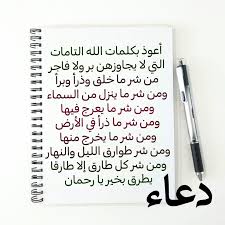 أعوذ بكلمات الله التامات
التي لا يجاوزهن بر ولا فاجر
من شر ما خلق وذرأ وبرأ
ومن شر ما ينزل من السماء
ومن شر ما يعرج فيها
ومن شر ما ذرأ في الأرض
ومن شر ما يخرج منها
ومن شر طوارق الليل والنهار
ومن شر كل طارق إلا طارقا
يطرق بخير يا رحمان
دعاء